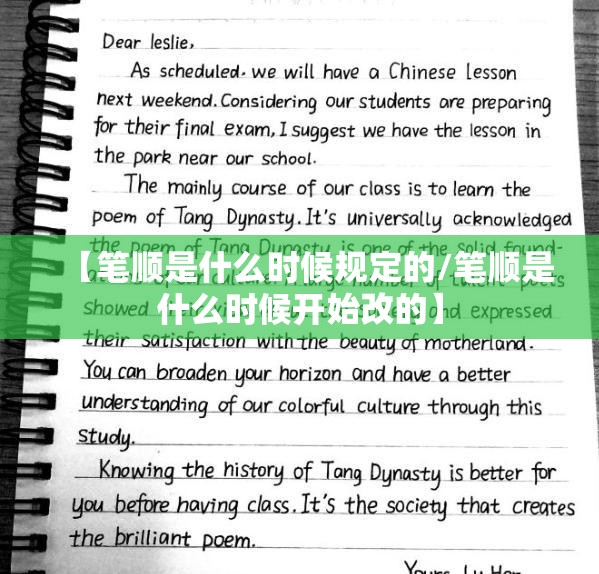 Dear leslie,
As scheduled, we will have a Chinese Lesson
next weekend. Considering our students are preparing
for their final exam, I suggest we have the lesson in
the park near our school.
The mainly course of our class is to learn the
poem of Tang Dynasty. It's universally acknowledged
the poem of Tang Dynasty is one of the solid found-
【笔顺是什么时候规定的/笔顺是
什么时候开始改的】
showed and expressed
their satisfaction with the beauty of motherland.
You can broaden your horizon and have a better
understanding of our colorful culture through this
study.
Knowing the history of Tang Dynasty is better for
you before having class. It's the society that creates
the brilliant poem.
Yours, Lu Hao